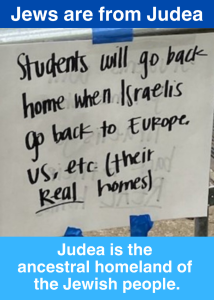 Jews are from Judea
Students will go back
home when Israelis
go back to Europe,
US, etc (their
Real homes)
Judea is the
ancestral homeland of
the Jewish people.